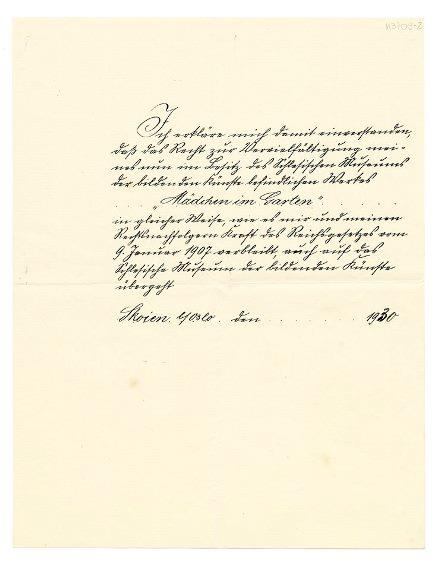 Ich erkläre mich damit einverstanden,
daß das Recht zur Vervielfältigung mei-
nes nun im Besitz des Schlesischen Museums
der bildenden Künste befindlichen Werkes
. . . . „Mädchen im Garten“ . . . . . .
in gleicher Weise, wie es mir und meinen
Rechtsnachfolgern Kraft des Reichsgesetzes vom
9. Januar 1907 verbleibt, auch auf das
Schlesische Museum der bildenden Künste
übergeht.
Skoien. Oslo. den . . . . . . . . . 1930